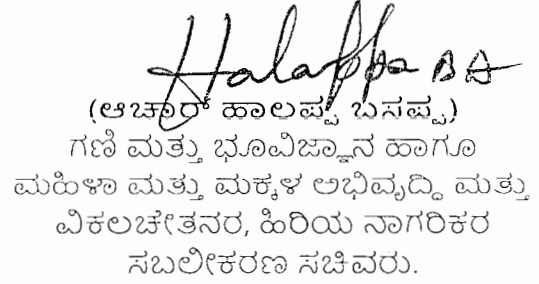 Halappa B A
(ಆಚಾರ್ ಹಾಲಪ್ಪ ಬಸಪ್ಪ)
ಗಣಿ ಮತ್ತು ಭೂವಿಜ್ಞಾನ ಹಾಗೂ
ಮಹಿಳಾ ಮತ್ತು ಮಕ್ಕಳ ಅಭಿವೃದ್ದಿ ಮತ್ತು
ವಿಕಲಚೇತನರ, ಹಿರಿಯ ನಾಗರಿಕರ
ಸಬಲೀಕರಣ ಸಚಿವರು.